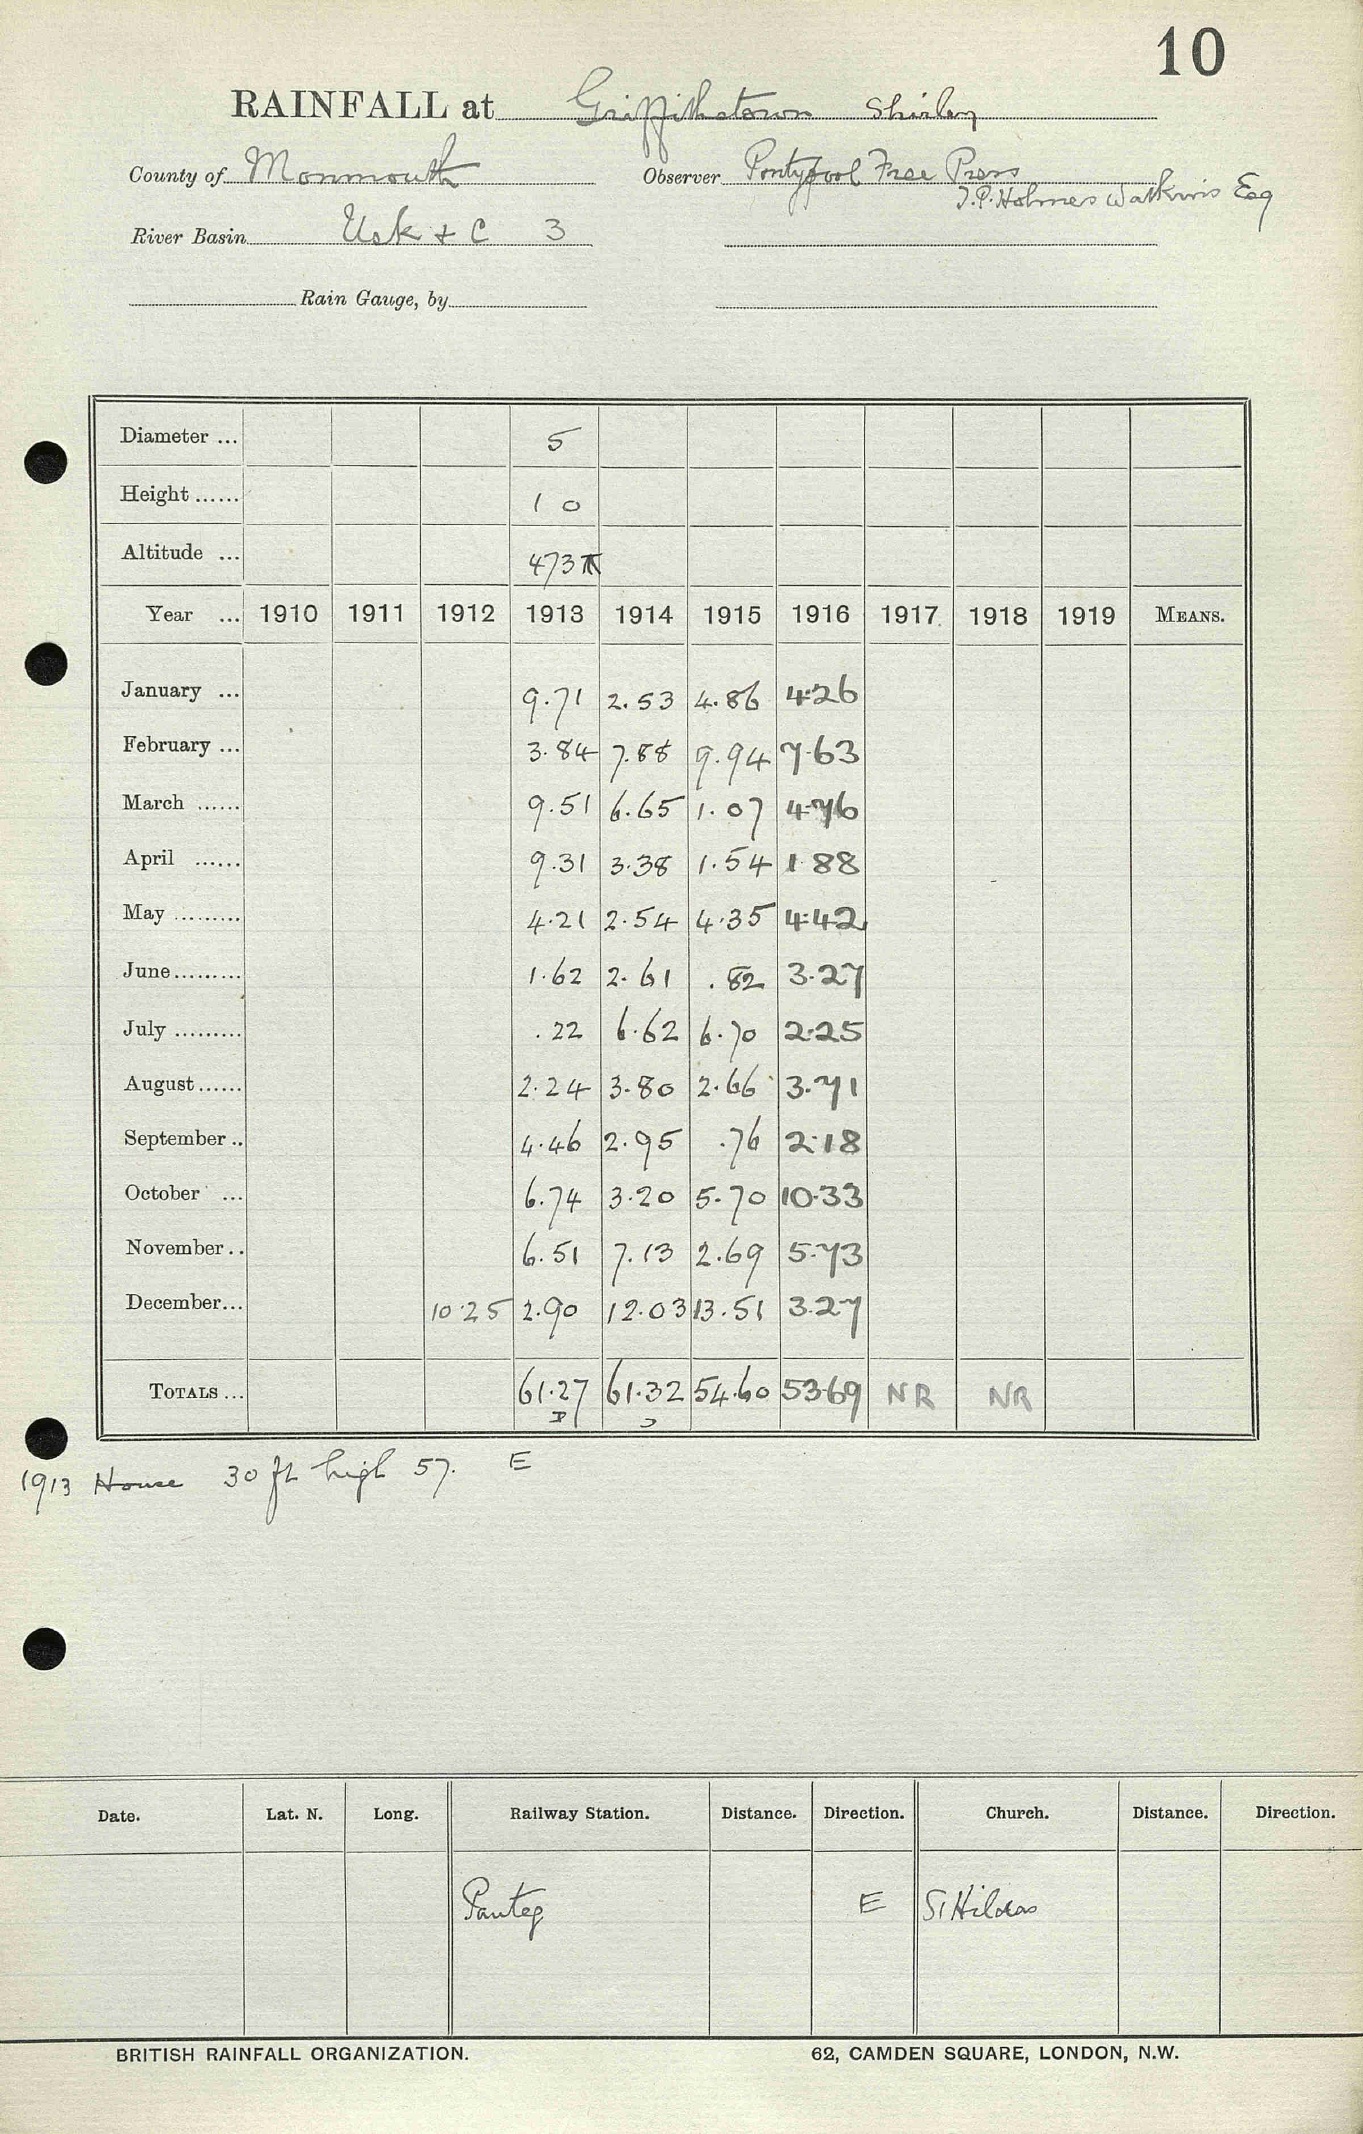 10
RAINFALL at Griffithstown Shirley
County of Monmouth Observer Pontypool Free Press
J.P. Holmes Watkins Esq
River Basin Usk & C 3
Rain Gauge, by
Diameter ... 5
Height ...... 1 0
Altitude ... 473
Year ... 1910 1911 1912 1913 1914 1915 1916 1917 1918 1919 MEANS.
January ... 9.71 2.53 4.86 4.26
February ... 3.84 7.88 9.94 7.63
March ...... 9.51 6.65 1.07 4.76
April ...... 9.31 3.38 1.54 1.88
May ......... 4.21 2.54 4.35 4.42
June ......... 1.62 2.61 .82 3.27
July ......... .22 6.62 6.70 2.25
August ...... 2.24 3.80 2.66 3.71
September .. 4.46 2.95 .76 2.18
October ... 6.74 3.20 5.70 10.33
November .. 6.51 7.13 2.69 5.73
December ... 10.25 2.90 12.03 13.51 3.27
TOTALS ... 61.27 61.32 54.60 53.69 NR NR
1913 House 30 ft high 57. E
Date. Lat. N. Long. Railway Station. Distance. Direction. Church. Distance. Direction.
Panteg E St Hildas
BRITISH RAINFALL ORGANIZATION. 62, CAMDEN SQUARE, LONDON, N.W.